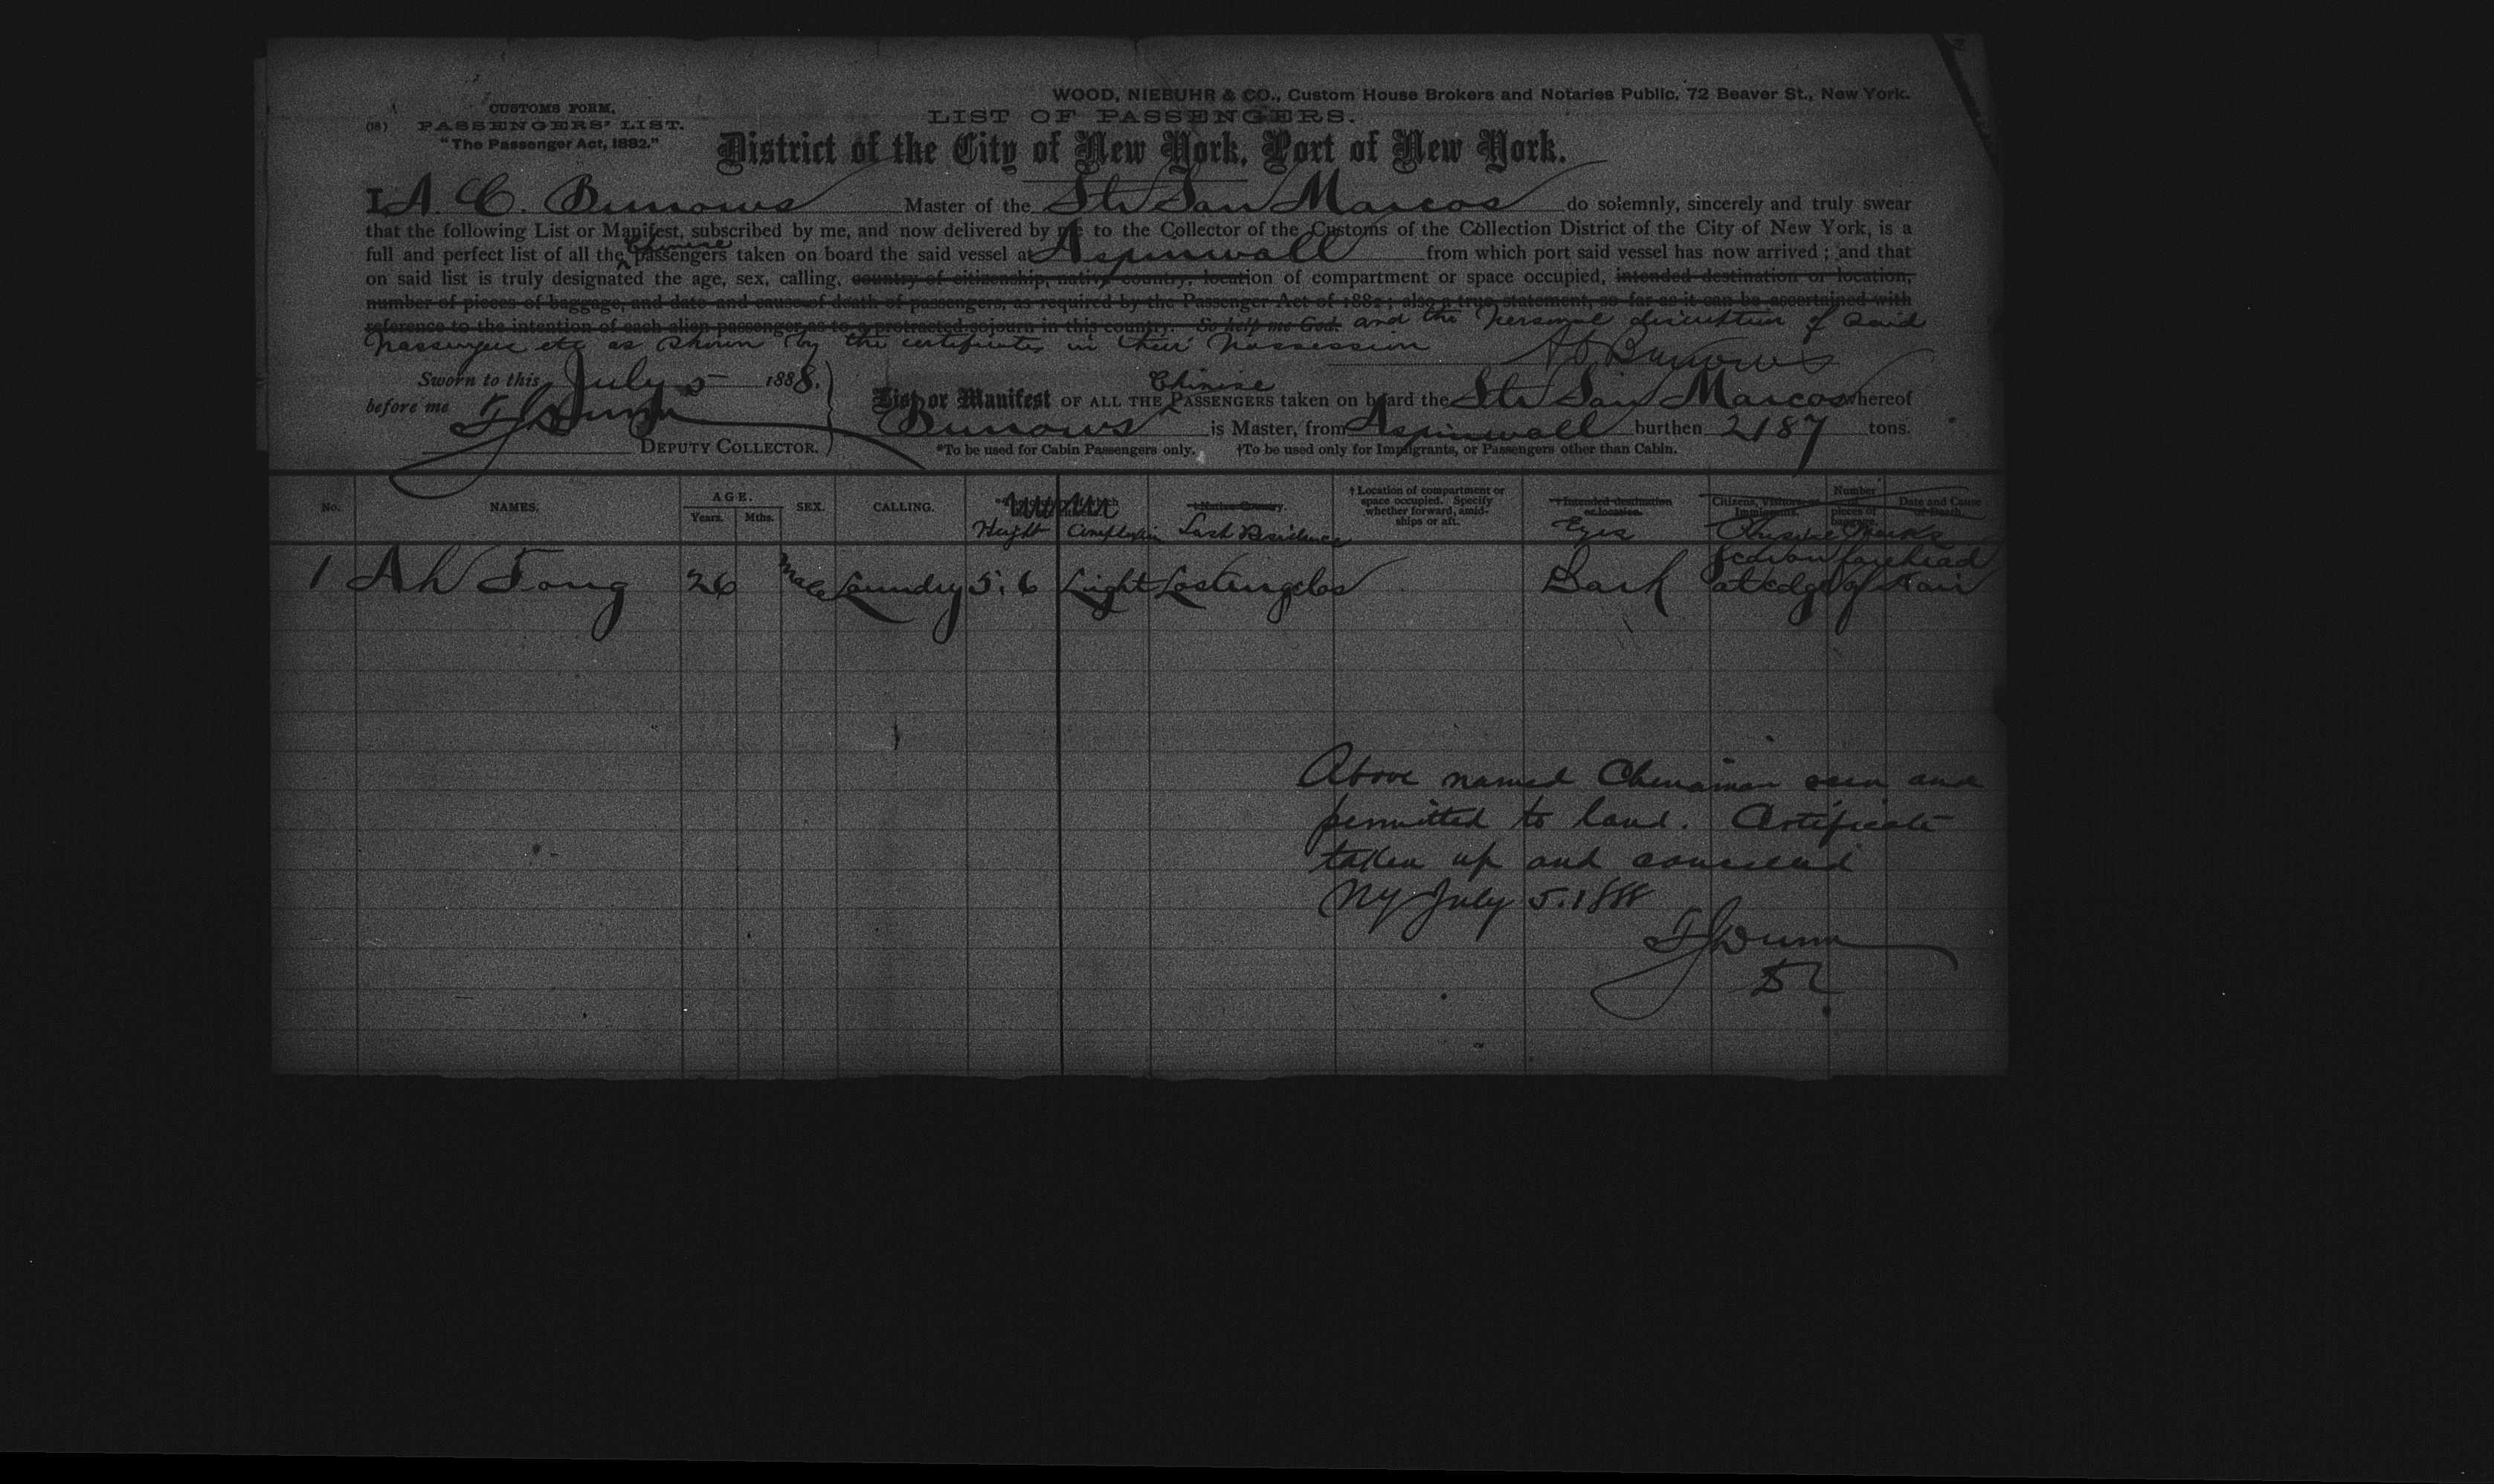 WOOD, NIEBUHR & CO., Custom House Brokers and Notaries Public, 72 Beaver St., New York.
CUSTOMS FORM.
(18) PASSENGERS' LIST.
"The Passenger Act, 1882."
LIST OF PASSENGERS.
District of the City of New York, Port of New York.
I A. C. Burrows Master of the Str San Marcos do solemnly, sincerely and truly swear
that the following List or Manifest, subscribed by me, and now delivered by me to the Collector of the Customs of the Collection District of the City of New York, is a
full and perfect list of all the Chinese passengers taken on board the said vessel at Aspinwall from which port said vessel has now arrived; and that
on said list is truly designated the age, sex, calling, country of citizenship, native country, location of compartment or space occupied, intended destination or location,
number of pieces of baggage, and date and cause of death of passengers, as required by the Passenger Act of 1882; also a true statement, so far as it can be ascertained with
reference to the intention of each alien passenger as to a protracted sojourn in this country. So help me God. and the personal discription of said
passengers etc as shown by the certificates in their possession
A C Burrows
Sworn to this July 5 1888.
before me F J Dunn
DEPUTY COLLECTOR.
List or Manifest OF ALL THE Chinese PASSENGERS taken on board the Str San Marcos whereof
Burrows is Master, from Aspinwall burthen 2187 tons.
*To be used for Cabin Passengers only. †To be used only for Immigrants, or Passengers other than Cabin.
No. NAMES. AGE. Years. Mths. SEX. CALLING. Height Complexion †Native Country. Last Residence †Location of compartment or space occupied. Specify whether forward, amidships or aft. †Intended destination or location. Eyes Citizens, Visitors or Immigrants. Number of pieces of baggage. Date and Cause of Death. Physical Marks
1 Ah Fong 26 Male Laundry 5.6 Light Los Angelos Dark Scar on forehead at edge of hair
Above named Chinaman seen and
permitted to land. Certificate
taken up and canceled
NY July 5. 1888
F J Dunn
DC